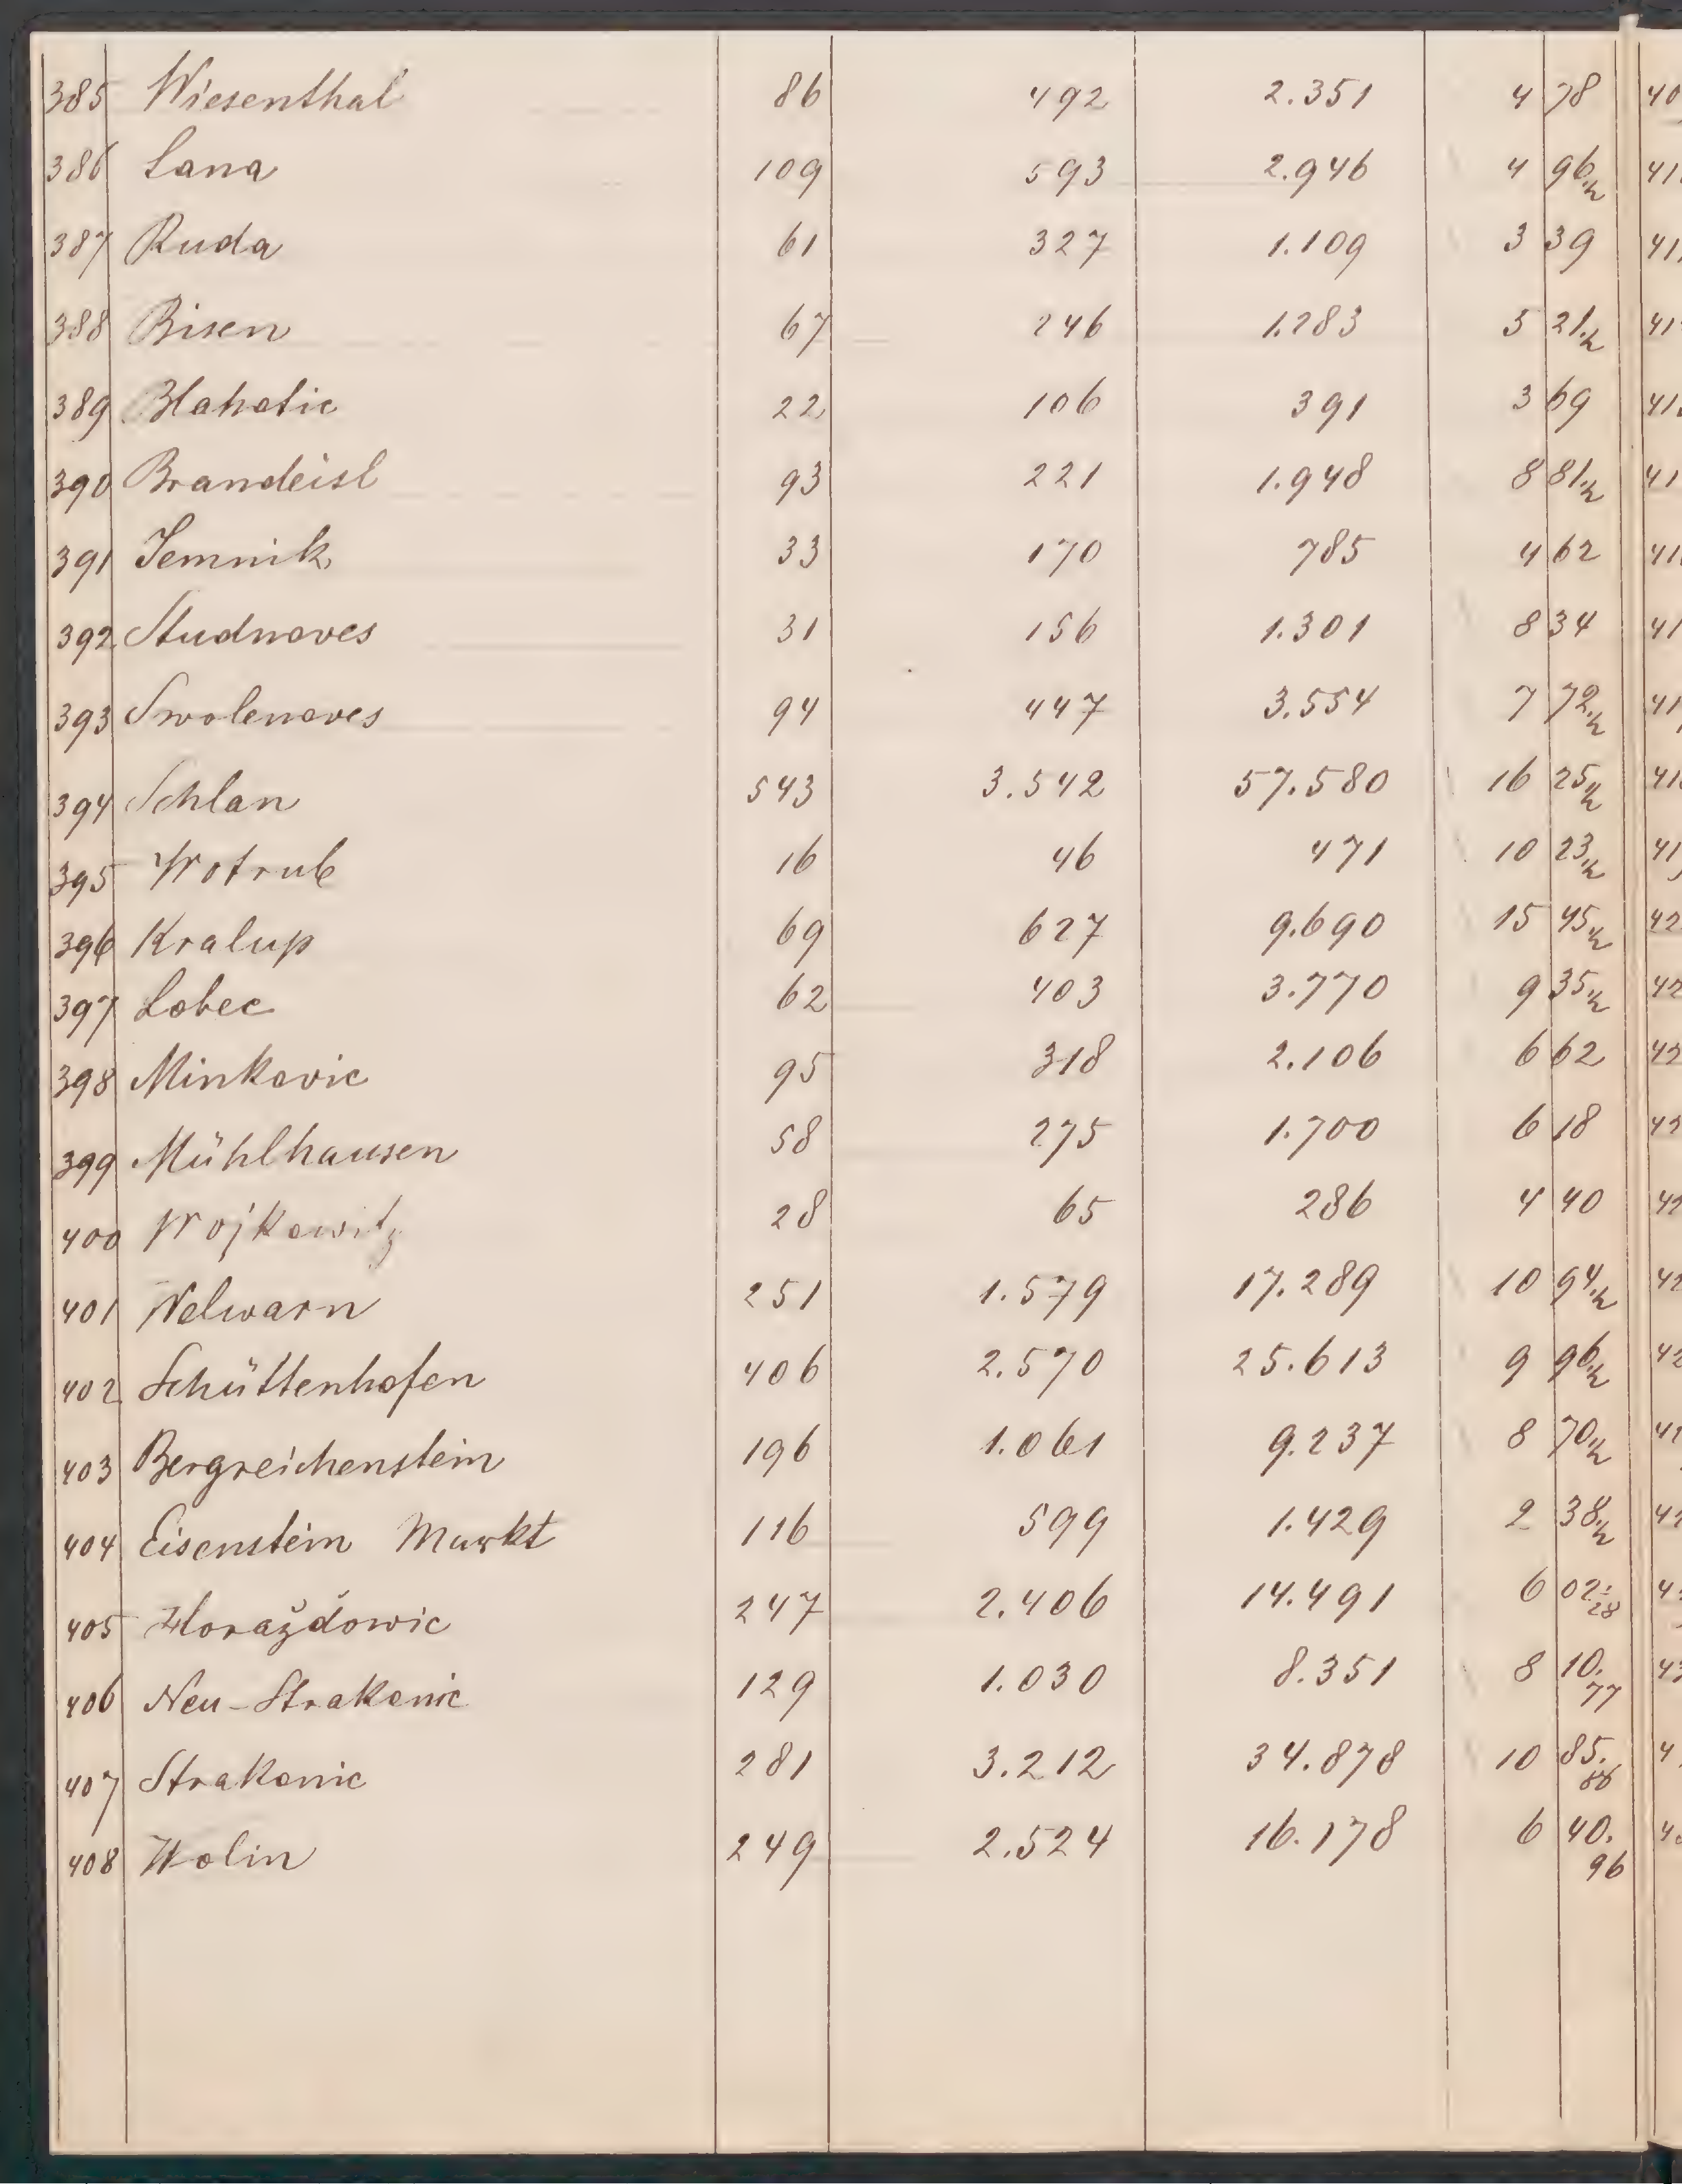 385 Wiesenthal 86 492 2.351 4 78
386 Lana 109 593 2.946 4 96.½
387 Ruda 61 327 1.109 3 39
388 Bisen 67 246 1.283 5 21.½
389 Blahotic 22 106 391 3 69
390 Brandeisl 93 221 1.948 8 81.½
391 Jemnik 33 170 785 4 62
392 Studnoves 31 156 1.301 8 34
393 Swolenoves 94 447 3.554 7 72.½
394 Schlan 543 3.542 57.580 16 25.½
395 Wotrub 16 46 471 10 23.½
396 Kralup 69 627 9.690 15 45.½
397 Lobec 62 403 3.770 9 35.½
398 Minkovic 95 318 2.106 6 62
399 Mühlhausen 58 275 1.700 6 18
400 Wojkowitz 28 65 286 4 40
401 Welwarn 251 1.579 17.289 10 94.½
402 Schüttenhofen 406 2.570 25.613 9 96.½
403 Bergreichenstein 196 1.061 9.237 8 70.½
404 Eisenstein Markt 116 599 1.429 2 38.½
405 Horažďowic 247 2.406 14.491 6 02.28
406 Neu-Strakonic 129 1.030 8.351 8 10.77
407 Strakonic 281 3.212 34.878 10 85.86
408 Wolin 249 2.524 16.178 6 40.96